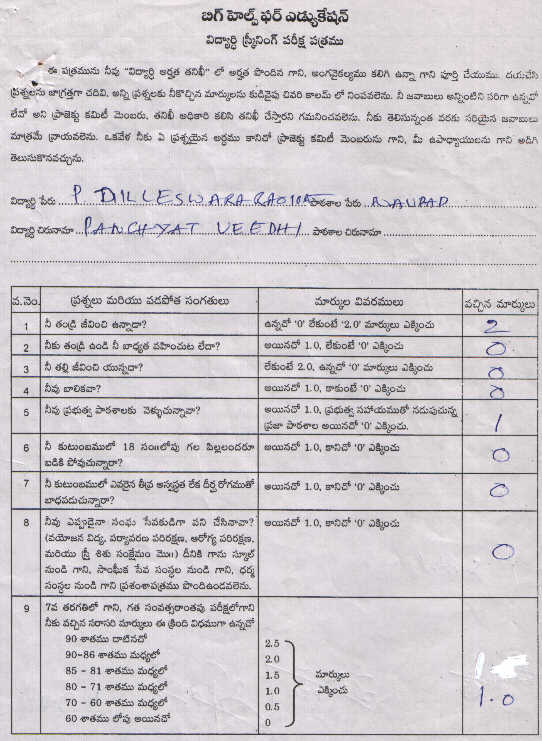 బిగ్ హెల్ప్ ఫర్ ఎడ్యుకేషన్
విద్యార్థి స్క్రీనింగ్ పరీక్ష పత్రము
ఈ పత్రమును నీవు "విద్యార్థి అర్హత తనిఖీ" లో అర్హత పొందిన గాని, అంగవైకల్యము కలిగి ఉన్నా గాని పూర్తి చేయుము. దయచేసి
ప్రశ్నలను జాగ్రత్తగా చదివి, అన్ని ప్రశ్నలకు నీకొచ్చిన మార్కులను కుడివైపు చివరి కాలమ్ లో నింపవలెను. నీ జవాబులు అన్నింటిని సరిగా ఉన్నవో
లేవో అని ప్రాజెక్టు కమిటీ మెంబరు, తనిఖీ అధికారి కలిసి తనిఖీ చేస్తారని గమనించవలెను. నీకు తెలిసినంత వరకు సరియైన జవాబులు
మాత్రమే వ్రాయవలెను. ఒకవేళ నీకు ఏ ప్రశ్నయైన అర్థము కానిచో ప్రాజెక్టు కమిటీ మెంబరును గాని, మీ ఉపాధ్యాయులను గాని అడిగి
తెలుసుకొనవచ్చును.
విద్యార్థి పేరు P DILLESWARARAO 10A పాఠశాల పేరు
విద్యార్థి చిరునామా PANCHYAT VEEDHI పాఠశాల చిరునామా
వ.నెం. ప్రశ్నలు మరియు పడపోత సంగతులు మార్కుల వివరములు వచ్చిన మార్కులు
1 నీ తండ్రి జీవించి ఉన్నాడా? ఉన్నచో '0' లేకుంటే '2.0' మార్కులు ఎక్కించు 2
2 నీకు తండ్రి ఉండి నీ బాధ్యత వహించుట లేదా? అయినచో 1.0, లేకుంటే '0' ఎక్కించు 0
3 నీ తల్లి జీవించి యున్నదా? లేకుంటే 2.0, ఉన్నచో '0' మార్కులు ఎక్కించు 0
4 నీవు బాలికవా? అయినచో 1.0, కాకుంటే '0' ఎక్కించు 0
5 నీవు ప్రభుత్వ పాఠశాలకు వెళ్ళుచున్నావా? అయినచో 1.0, ప్రభుత్వ సహాయముతో నడుపుచున్న
ప్రజా పాఠశాల అయినచో '0' ఎక్కించు. 1
6 నీ కుటుంబములో 18 సం॥లోపు గల పిల్లలందరూ
బడికి పోవుచున్నారా? అయినచో 1.0, కానిచో '0' ఎక్కించు 0
7 నీ కుటుంబములో ఎవరైన తీవ్ర అస్వస్థత లేక దీర్ఘ రోగముతో
బాధపడుచున్నారా? అయినచో 1.0, కానిచో '0' ఎక్కించు 0
8 నీవు ఎప్పుడైనా సంఘ సేవకుడిగా పని చేసినావా? అయినచో 1.0, కానిచో '0' ఎక్కించు
(వయోజన విద్య, పర్యావరణ పరిరక్షణ, ఆరోగ్య పరిరక్షణ,
మరియు స్త్రీ శిశు సంక్షేమం మొ॥) దీనికి గాను స్కూల్ 0
నుండి గాని, సాంఘీక సేవ సంస్థల నుండి గాని, ధర్మ
సంస్థల నుండి గాని ప్రశంశాపత్రము పొందిఉండవలెను.
9 7వ తరగతిలో గాని, గత సంవత్సరాంతపు పరీక్షలోగాని
నీకు వచ్చిన సరాసరి మార్కులు ఈ క్రింది విధముగా ఉన్నచో
90 శాతము దాటినచో 2.5
90-86 శాతము మధ్యలో 2.0
85 - 81 శాతము మధ్యలో 1.5 మార్కులు
80 - 71 శాతము మధ్యలో 1.0 ఎక్కించు 1.0
70 - 60 శాతము మధ్యలో 0.5
60 శాతము లోపు అయినచో 0